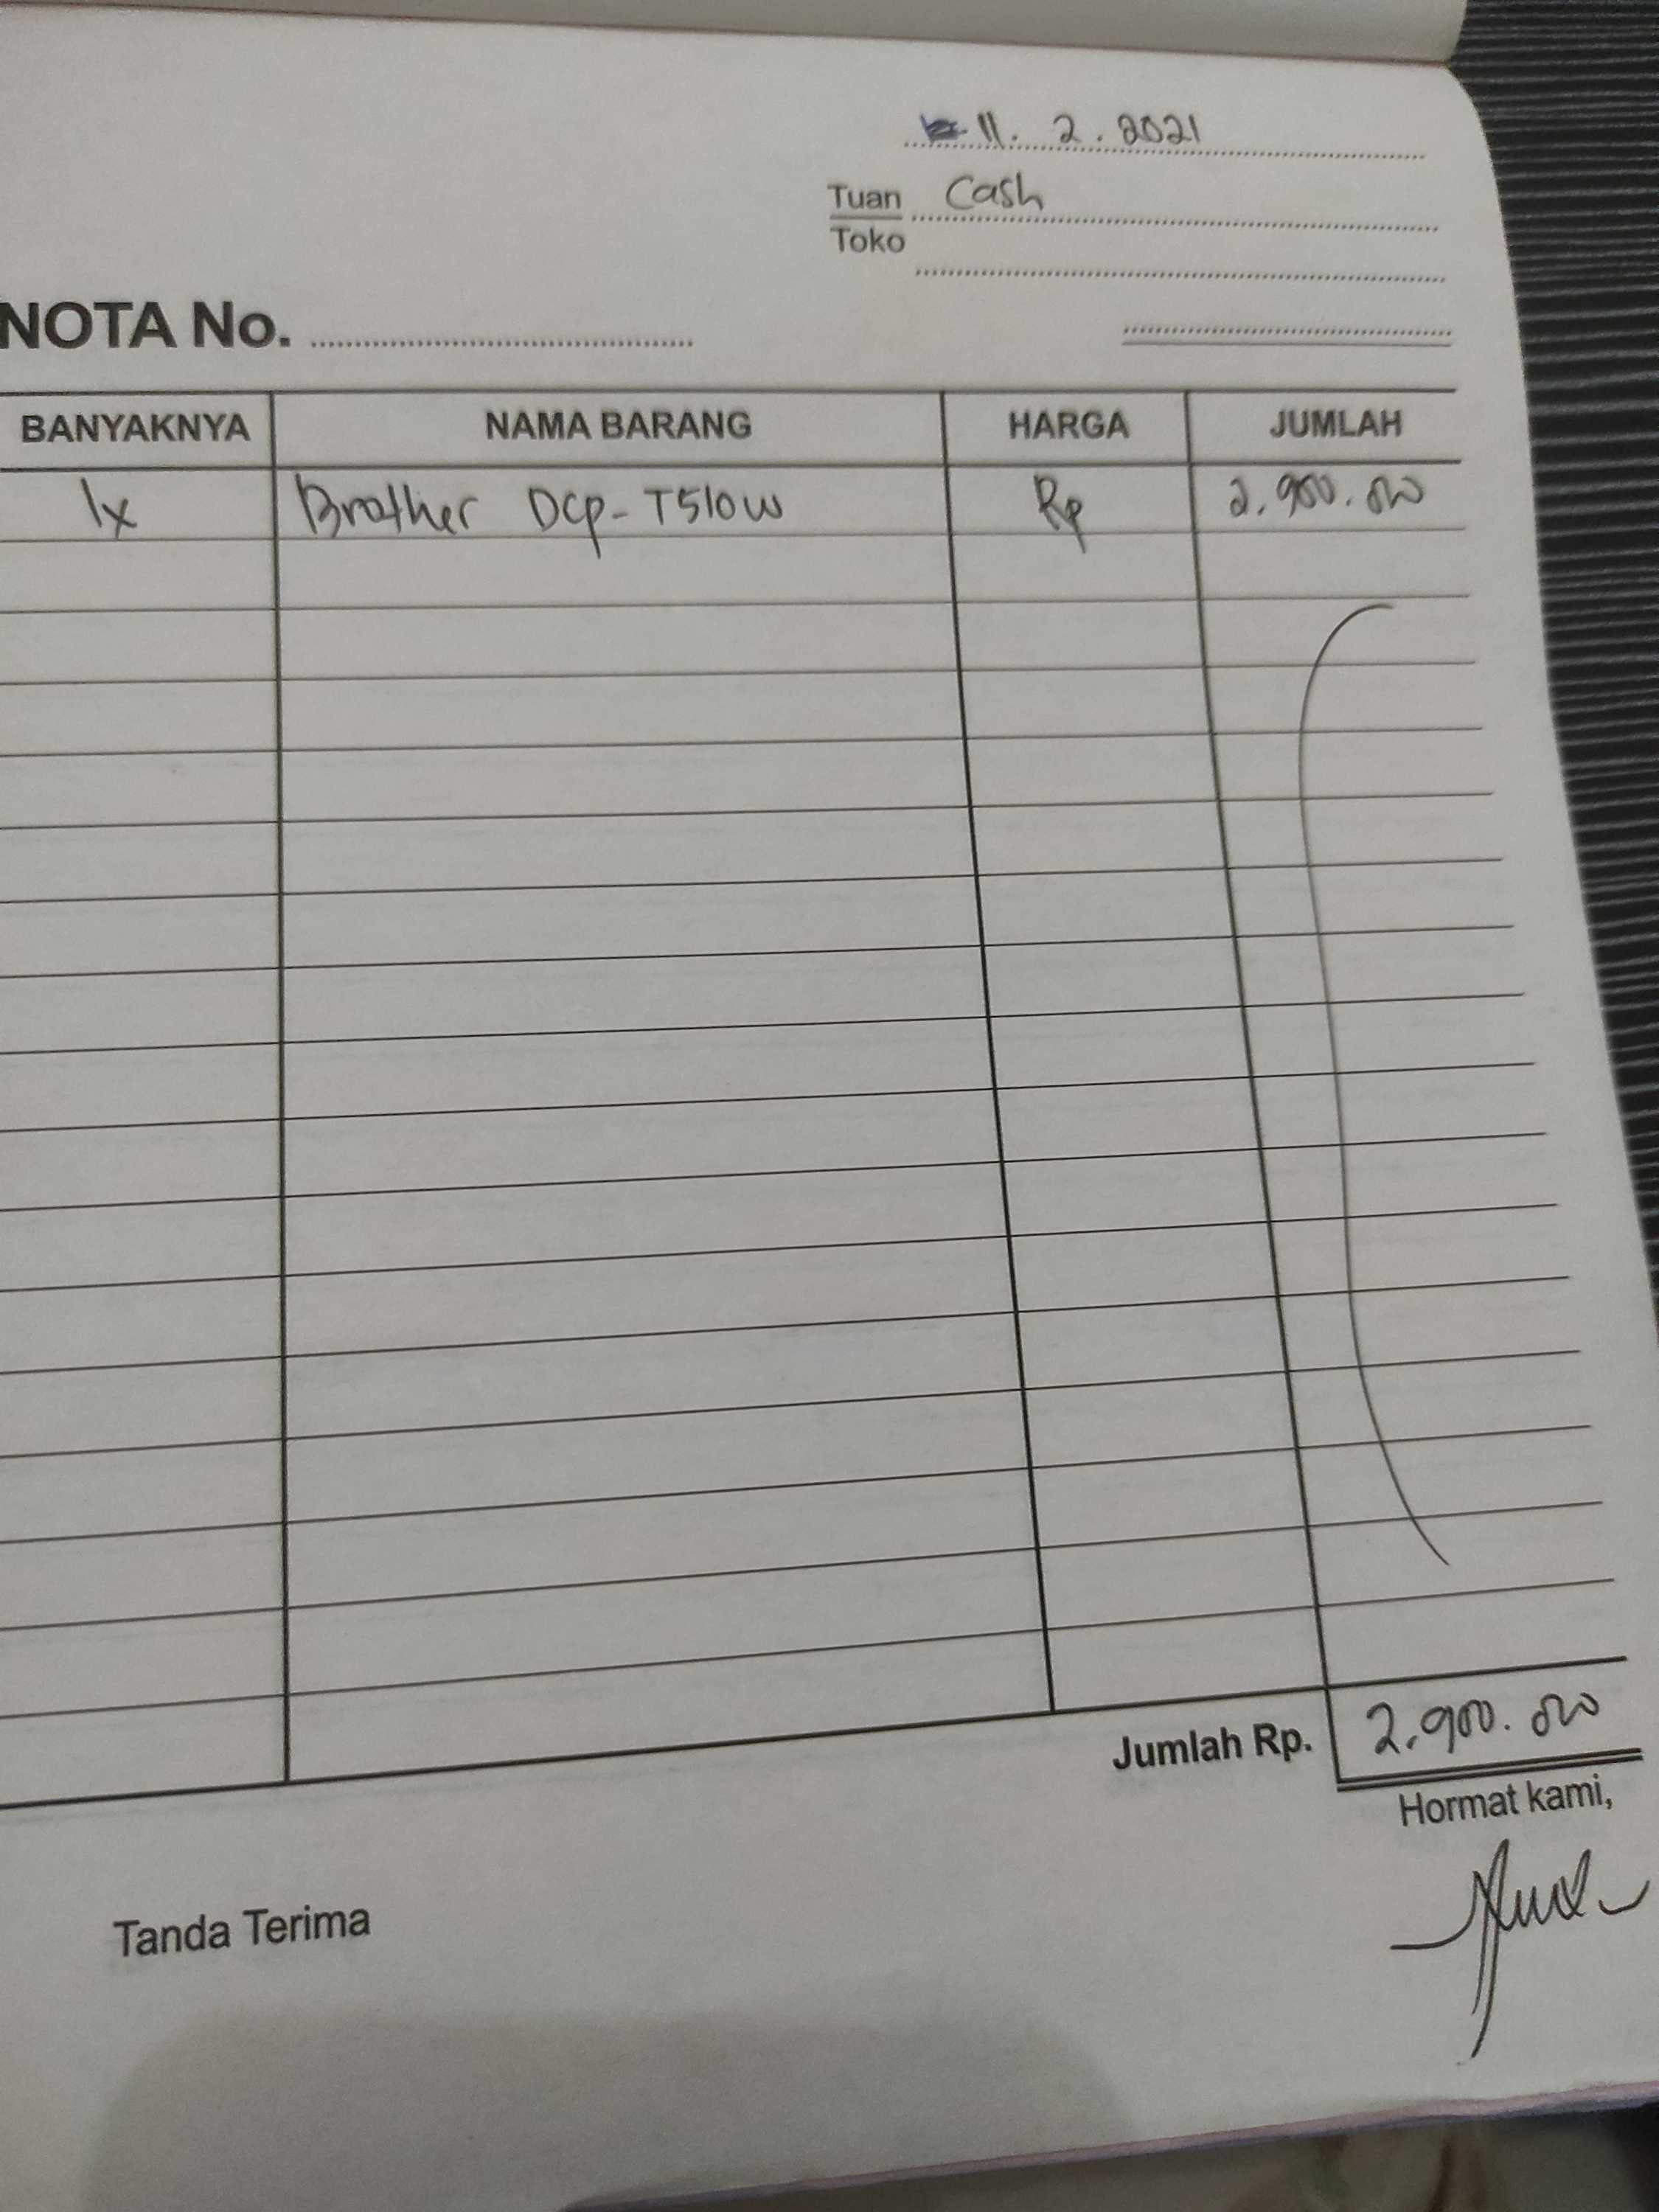 11. 2. 2021
Tuan Cash
Toko
NOTA No.
BANYAKNYA NAMA BARANG HARGA JUMLAH
1x Brother DCP-T510W Rp 2.900.000
Jumlah Rp. 2.900.000
Hormat kami,
Tanda Terima